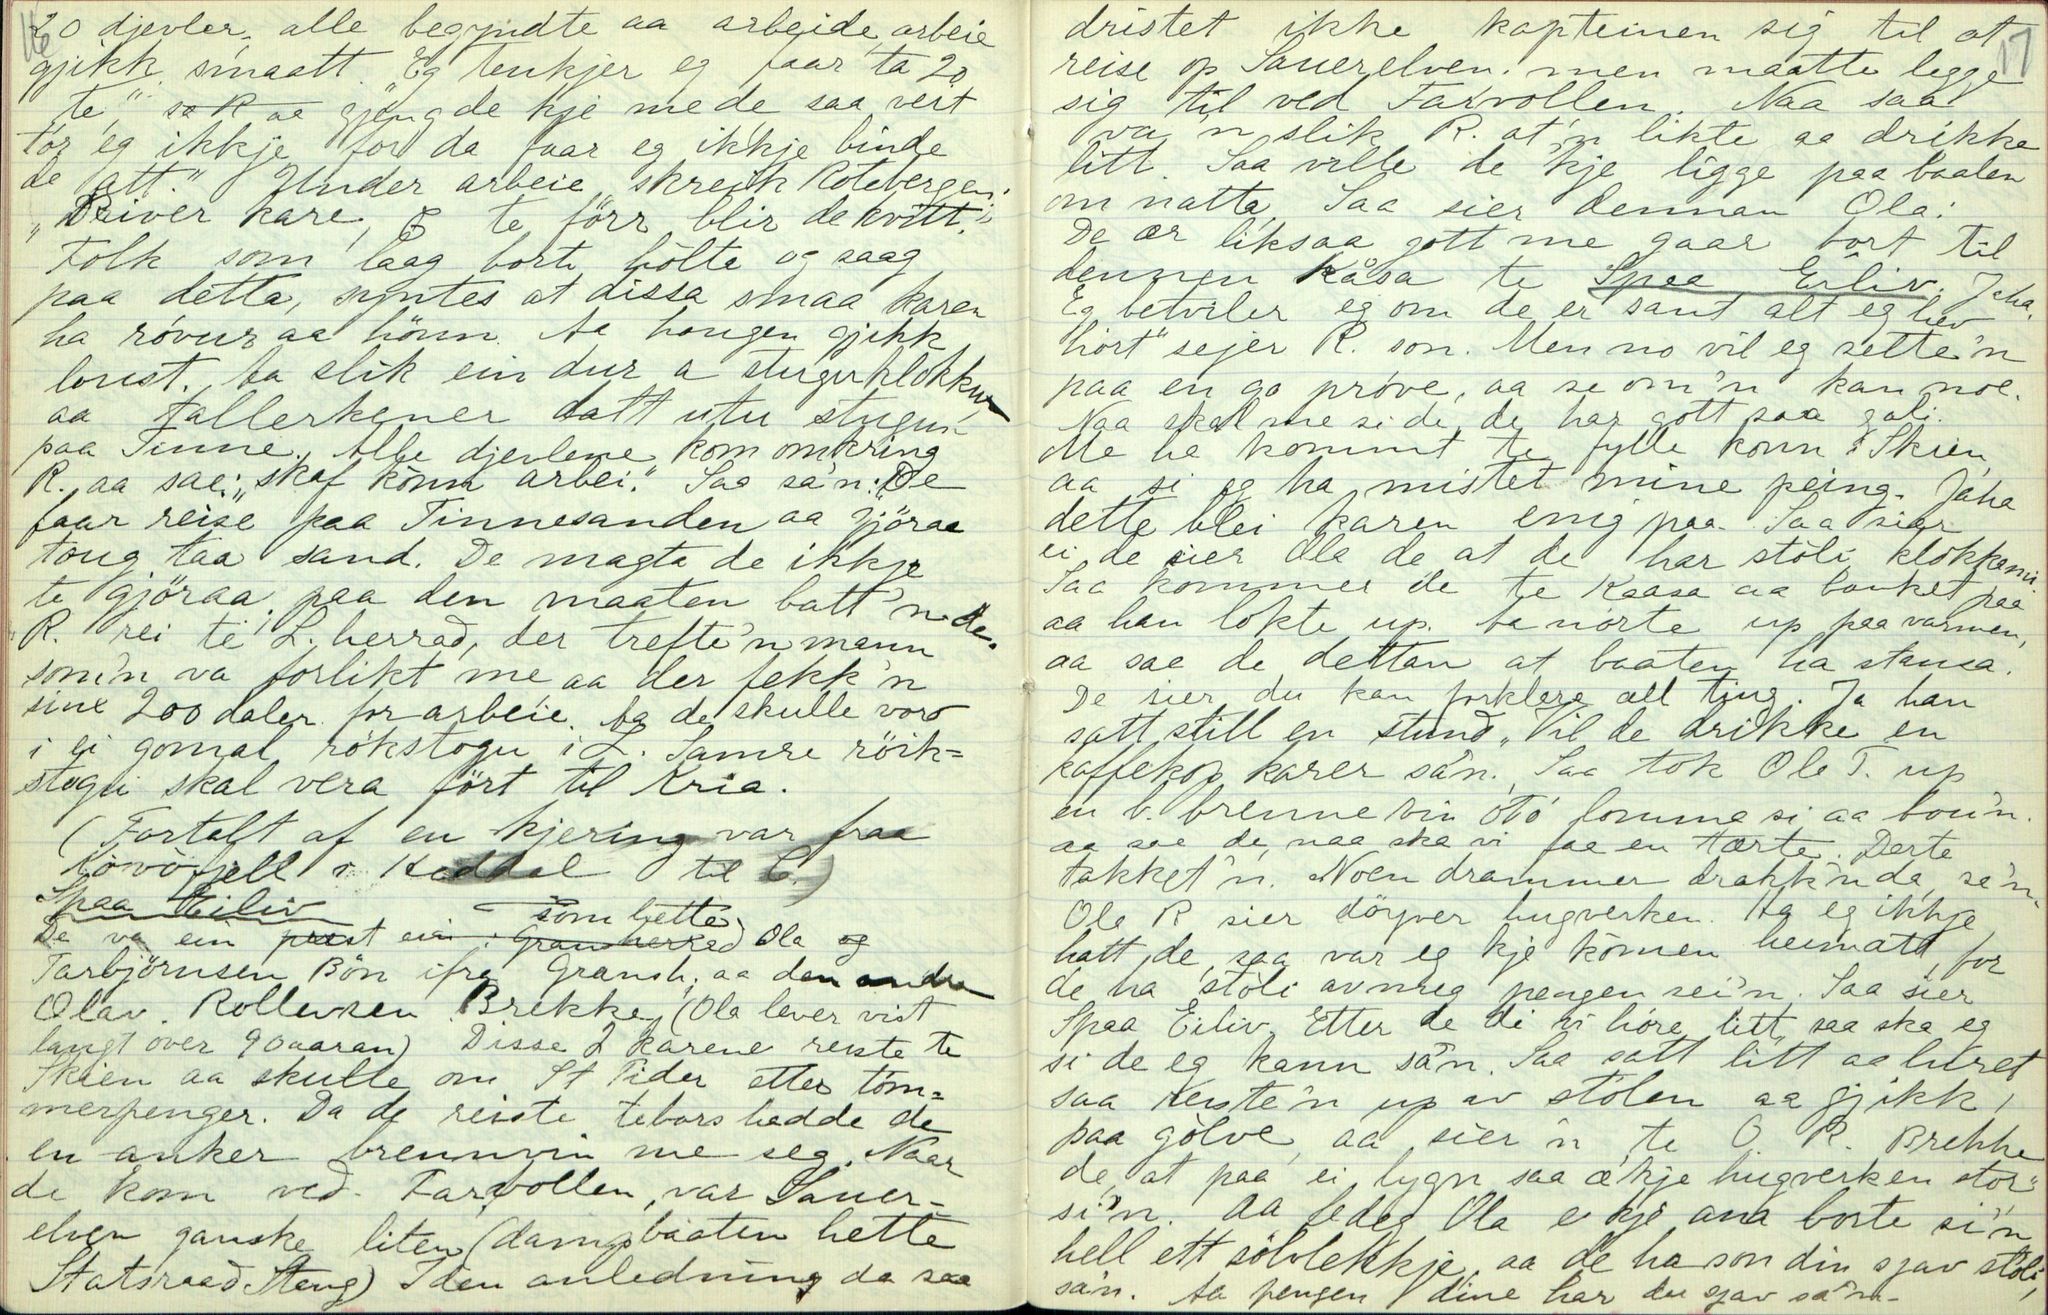 16
20 djevler, alle begyndte aa arbeide, arbeie
gjikk smaatt. "Eg tenkjer eg faar ta 20
te," sa R aa gjeng de kje me de saa vert
tør eg ikkje for da faar eg ikkje binde
de att." Under arbeie skreik Rotebergen:
"Driver kare, te förr blir de kvitt."
Folk som laag borte hölte og saag
paa detta, syntes at dissa smaa karen
ha róvur aa hönn. Aa haugen gjikk
loust. Aa slik ein dur a stuguklokkur
aa tallerkener datt utu stugun
paa Tinne. Alle djevlene kom omkring
R. aa sae: "skaf könn arbei." Saa sa'n: "De
faar reise paa Tinnesanden aa gjöraa
toug taa sand. De magta de ikkje
te gjöraa, paa den maaten batt'n de.
"R. rei te L. herrad, der trefte'n mann
som'n va forlikt me aa der fekk'n
sine 200 daler for arbeie. Aa de skulle voro
i ei gomal rókstogu i L. Samre röik=
stogu skal vera fört til Kria.
(Fortalt af en kjering var fraa
Kovófjell i Heddal til B.)
Spaa Eiliv
som hette
De va ein prest ein i Granherred Ola og
Tarbjörnsen Bön ifra Gransh. aa den andre
Olav Rollevsen Brekke, (Ola lever vist
langt over 90 aaran) Disse 2 karene reiste te
Skien aa skulle om St Tider etter töm=
merpenger. Da de reiste tebars hadde de
en anker brennvin me seg. Naar
de kom ved Farvollen, var Sauer-
elven ganske liten (dampbaaten hette
Statsraad Stang) I den anledning da saa
17
dristet ikke kapteinen sig til at
reise op Sauerelven. men maatte legge
sig til ved Farvollen. Naa saa
va'n slik R. at'n likte aa drikke
litt. Saa ville de 'kje ligge paa baaten
om natta. Saa sier dennan Ola:
De ær liksaa gott me gaar bort til
dennen Kåsa te Spaa Eiliv. Jaha.
Eg betviler eg om de er sant alt eg hev
hört" sejer R. son. Men no vil eg sette'n
paa en go próve, aa se om'n kan noe.
Naa skal me si de, de har gott saa gali.
Me ha kommt te fylle konn i Skien
aa si eg ha mistet mine peing. Jaha
dette blei karen enig paa. Saa sier
ei de sier Ola de at de har stöli klokka mi
Saa kommer de te Kaasa aa banket paa
aa han lokte up. Aa nörte up paa varmen,
aa sae de dettan at baaten ha stansa.
De sier du kan forklare all ting. Ja han
satt still en stund. "Vil de drikke en
kaffekop, karer sa'n. Saa tok Ole T. up
en b. brennevin ótó lomma si aa bou'n.
aa sae de, naa ska vi faa en tærte. Derte
takket'n. Noen drammer drakk'n da, sa'n.
Ole R sier döyver hugverken. Ha eg ikkje
hatt de, saa var eg kje kömen heimatt, for
de ha stöli av meg pengen sei'n. Saa sier
Spaa Eiliv. Etter de di vi höre litt, saa ska eg
si de eg kann sa'n. Saa satt litt aa luret
saa reiste'n up av stólen aa gjikk
paa gólve, aa sier'n te O. R. Brekke
de, at paa ei lygn saa æ kje hugverken stor"
si'n. Aa fedeg Ola e kje ana borte si'n
hell ett sölvlekkje, aa de ha son din sjav stöli,
sa'n. Aa pengen dine har du sjav sa'n.